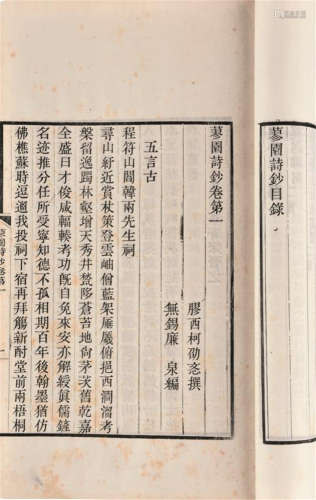 蓼園詩鈔目錄
蓼園詩鈔卷第一
膠西柯劭忞撰
無錫廉泉編
五言古
程符山閻韓兩先生祠
尋山紆近賞杖策登雲岫僧藍架厜㕒俯挹西澗溜考
槃留逸躅林壑增天秀井甃陊蒼苔地尙茅茨舊乾嘉
全盛日才俊咸輻輳考功旣自免來安亦解綬眞儒鍵
名迹推分任所受寧知德不孤相期百年後翰墨猶仿
佛樵蘇時逗遛我投祠下宿再拜觴新酎堂前兩梧桐
蓼園詩鈔卷第一
一